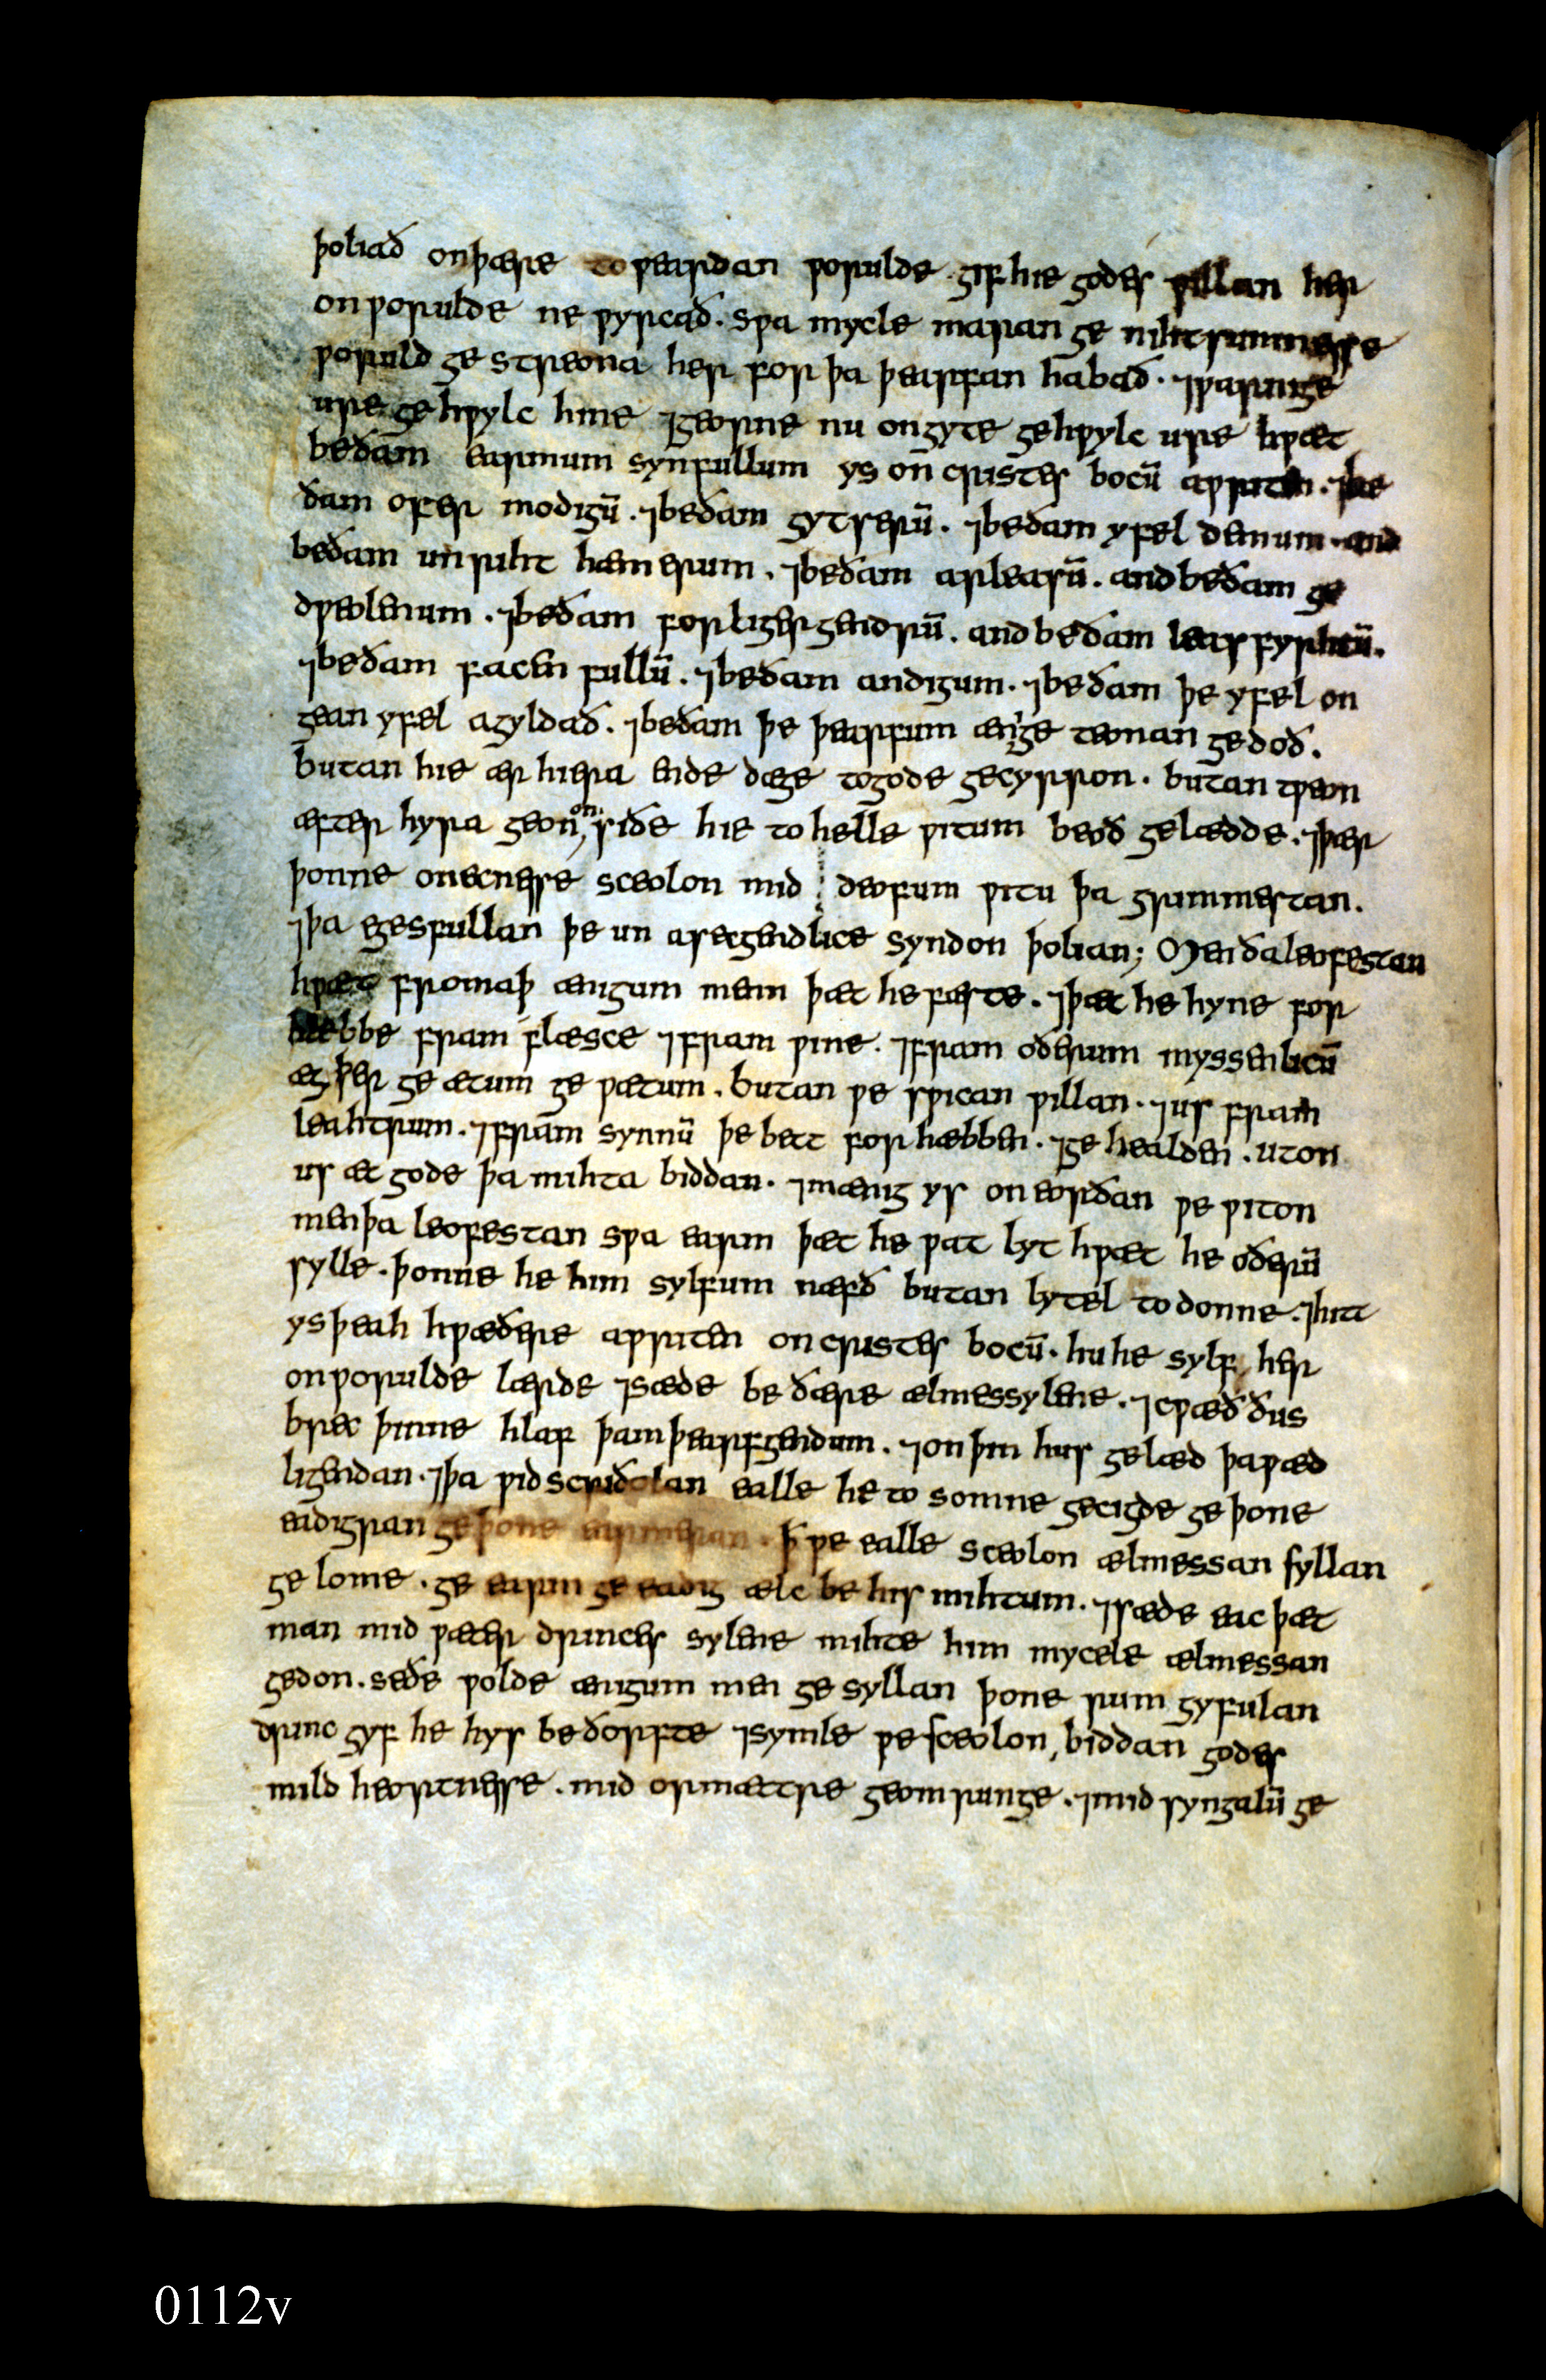 þoliað onþære toƿeardan ƿorulde. gif hie godes ƿillan her
onƿorulde ne ƿyrcað. sƿa mycle maran ge nihtsumnesse
ƿoruld ge streona her for þa þearfan habað. ⁊ƿarnige
ure ge hƿylc hine ⁊georne nu ongyte gehƿylc ure hƿæt
beðam earmum synfullum ys on cristes bocū aƿriten. ⁊be
ðam ofer modigū. ⁊beðam gytserū. ⁊beðam yfel demum. and
beðam unriht hæmerum. ⁊beðam arleasū. and beðam ge
dƿeolenum. ⁊beðam forligergendrū. and beðam leas fyrhtū.
⁊beðam facen fullū. ⁊beðam andigum. ⁊beðam þe yfel on
gean yfel agyldað. ⁊beðam þe þearfum æni`ge teonan gedoð.
butan hie ær hiera ende dæge togode gecyrron. butan tƿeon
æfter hyra geon`on´siðe hie to helle ƿitum beoð gelædde. ⁊þær
þonne onecnesse sceolon mid deofum ƿitu þa grimmestan.
⁊þa egesfullan þe un asecgendlice syndon þolian; Menðaleofestan
hƿæt fromaþ ænigum men þæt he fæste. ⁊þæt he hyne for
hæbbe fram flæsce ⁊fram ƿine. ⁊fram oðerum myssenlicū
ægþer ge ætum ge ƿætum. butan ƿe sƿican ƿillan. ⁊us fram
leahtrum. ⁊fram synnū þe bett for hæbben. ⁊ge healden. uton
us æt gode þa mihta biddan. ⁊mænig ys on eorðan ƿe ƿiton
menþa leofestan sƿa earm þæt he ƿat lyt hƿæt he oðerū
sylle. þonne he him sylfum næfð butan lytel to donne. ⁊hitt
ys þeah hƿæðere aƿriten on cristes bocū. hu he sylf her
onƿorulde lærde ⁊sæde be ðære ælmessylene. ⁊cƿæð ðus
brec þinne hlaf þam þearfgendum. ⁊on þin hus gelæd þaƿæd
ligendan. ⁊þa ƿidscriðolan ealle he to somne gecigde ge þone
eadigran ge þone earmeran. ꝥ ƿe ealle sceolon ælmessan syllan
ge lome. ge earm ge eadig ælc be his mihtum. ⁊sæde eac þæt
man mid ƿæter drinces sylene mihte him mycele ælmessan
gedon. seðe ƿolde ænigum men ge syllan þone rum gyfulan
drinc gyf he hys beðorfte ⁊symle ƿe sceolon, biddan godes
mild heortnesse. mid ormættre geomrunge. ⁊mid syngalū ge
0112v